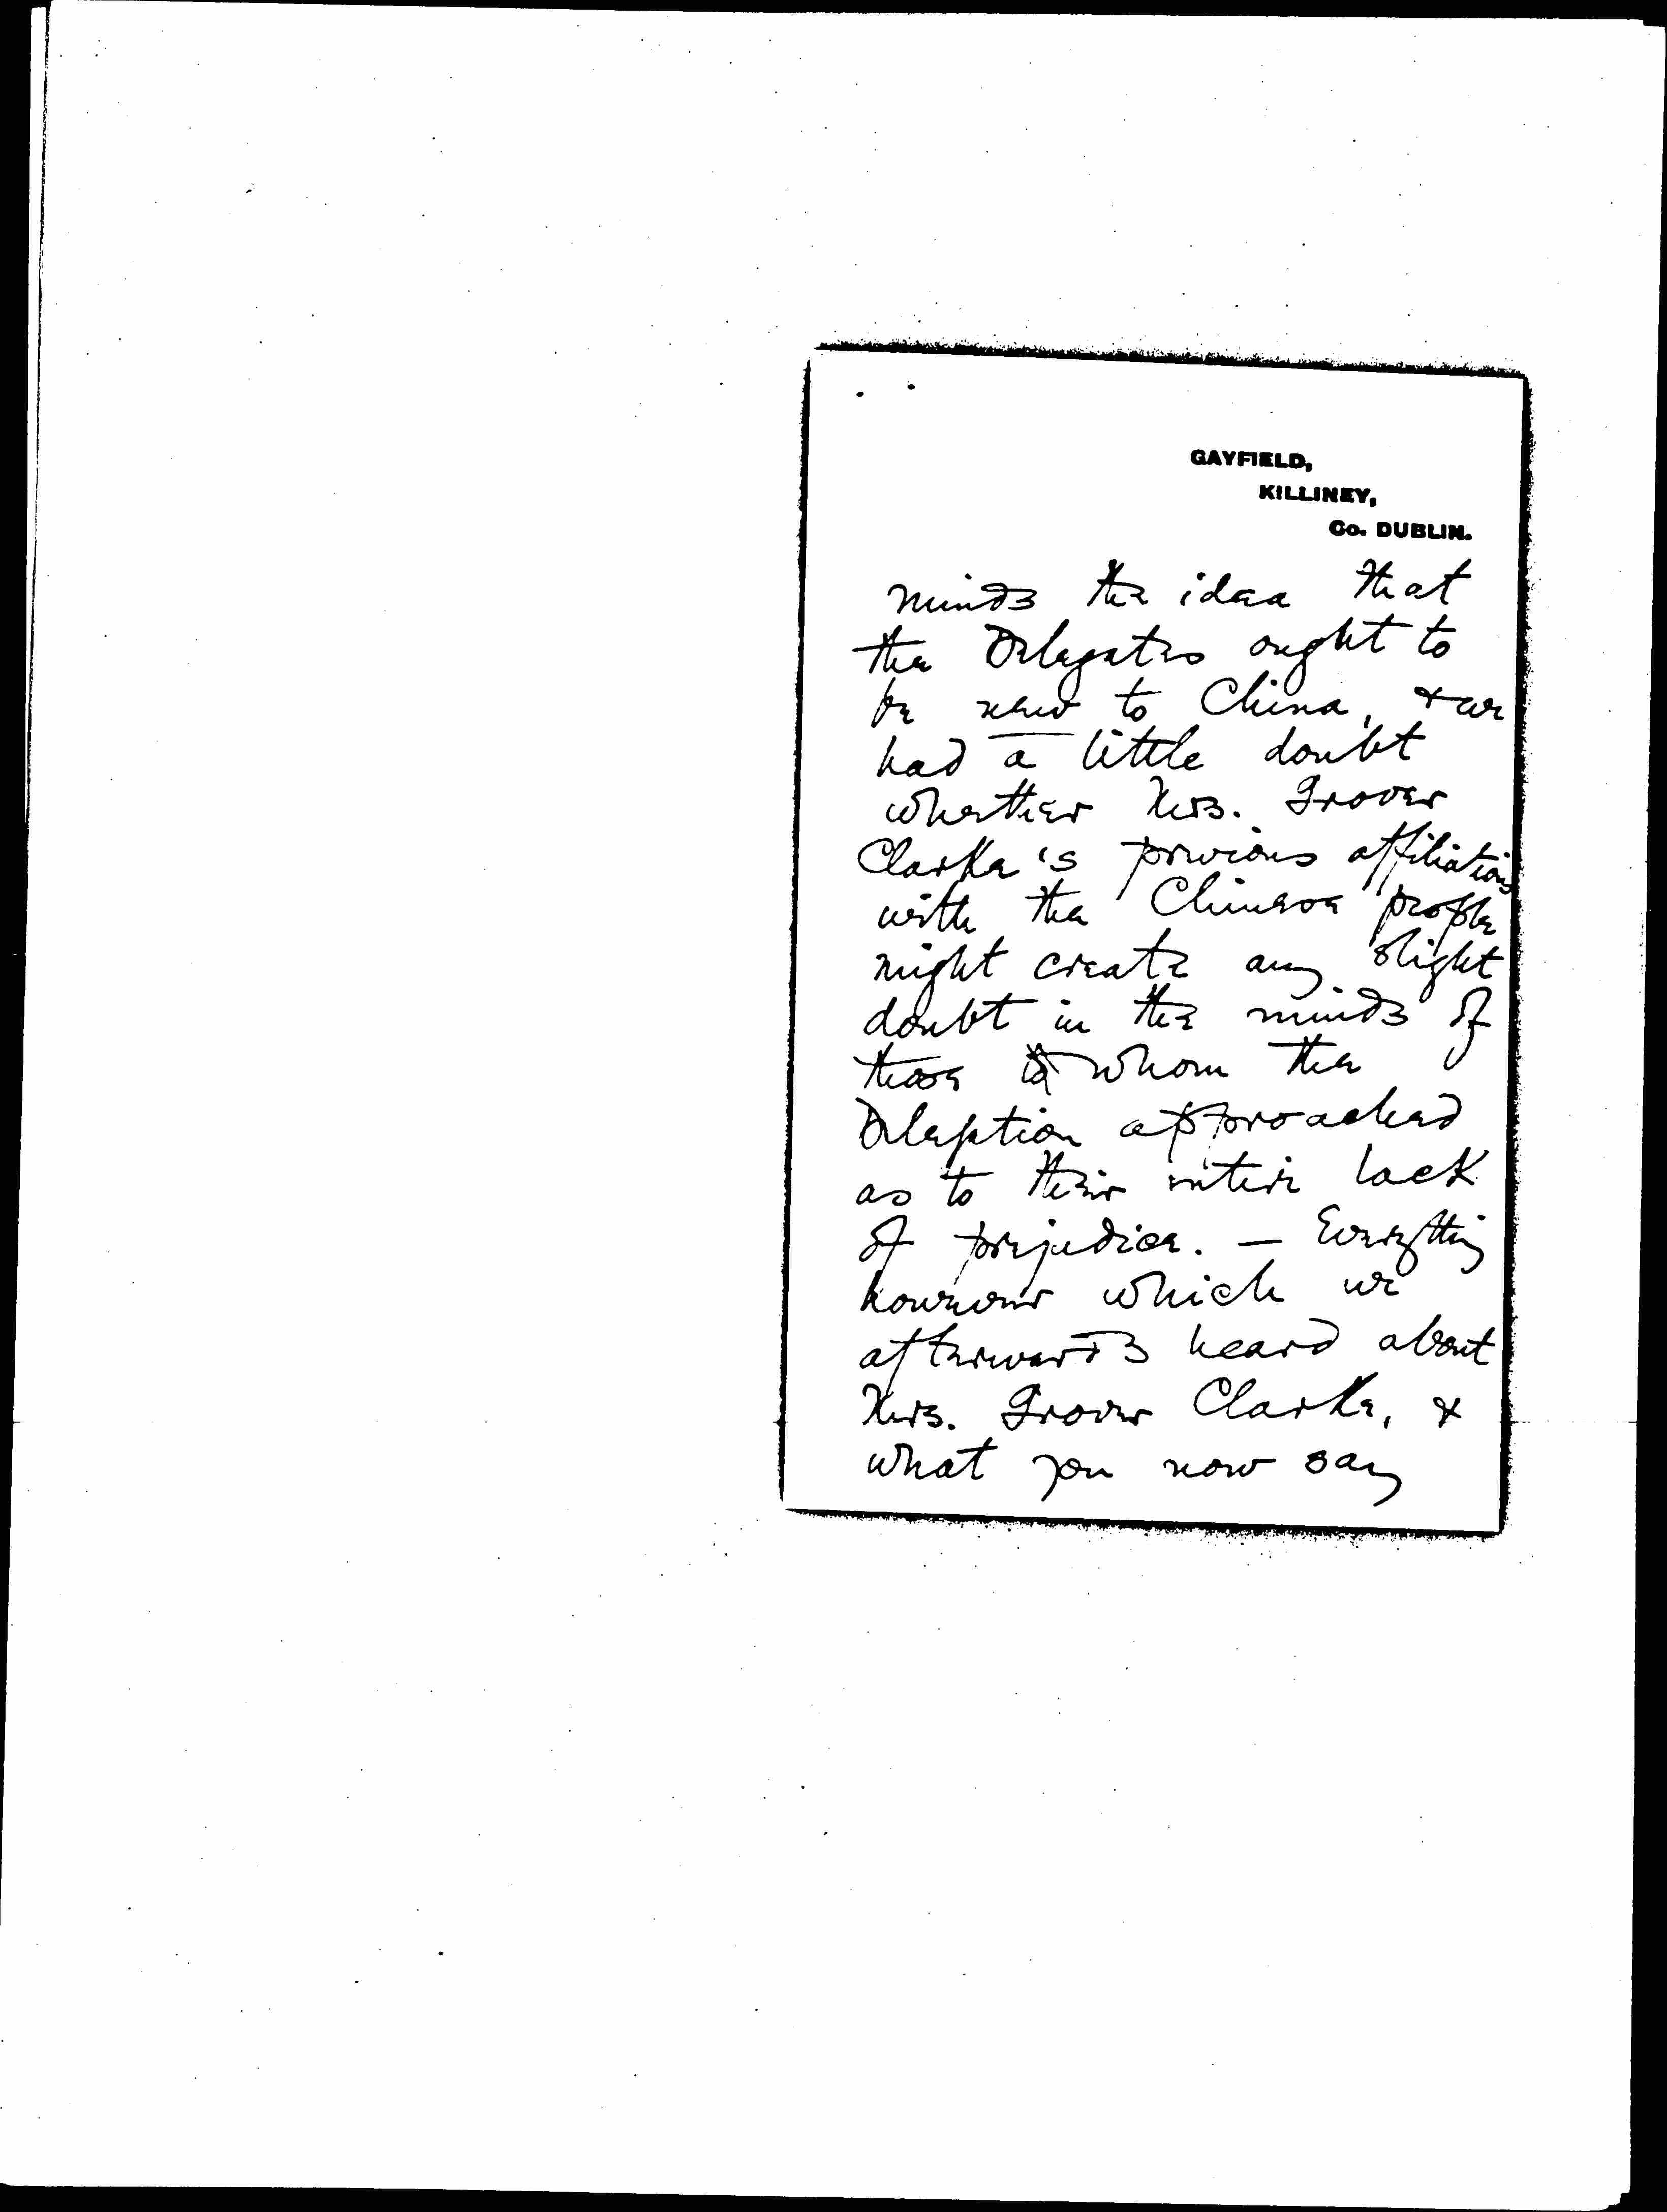 GAYFIELD,
KILLINEY,
Co. DUBLIN.
minds the idea that
the Delegates ought to
be new to China, & we
had a little doubt
whether Mrs. Grover
Clarke's previous affiliations
with the Chinese people
might create any slight
doubt in the minds of
those to whom the
Delegation approached
as to their entire lack
of prejudice. — Everything
however which we
afterwards heard about
Mrs. Grover Clarke, &
what you now say